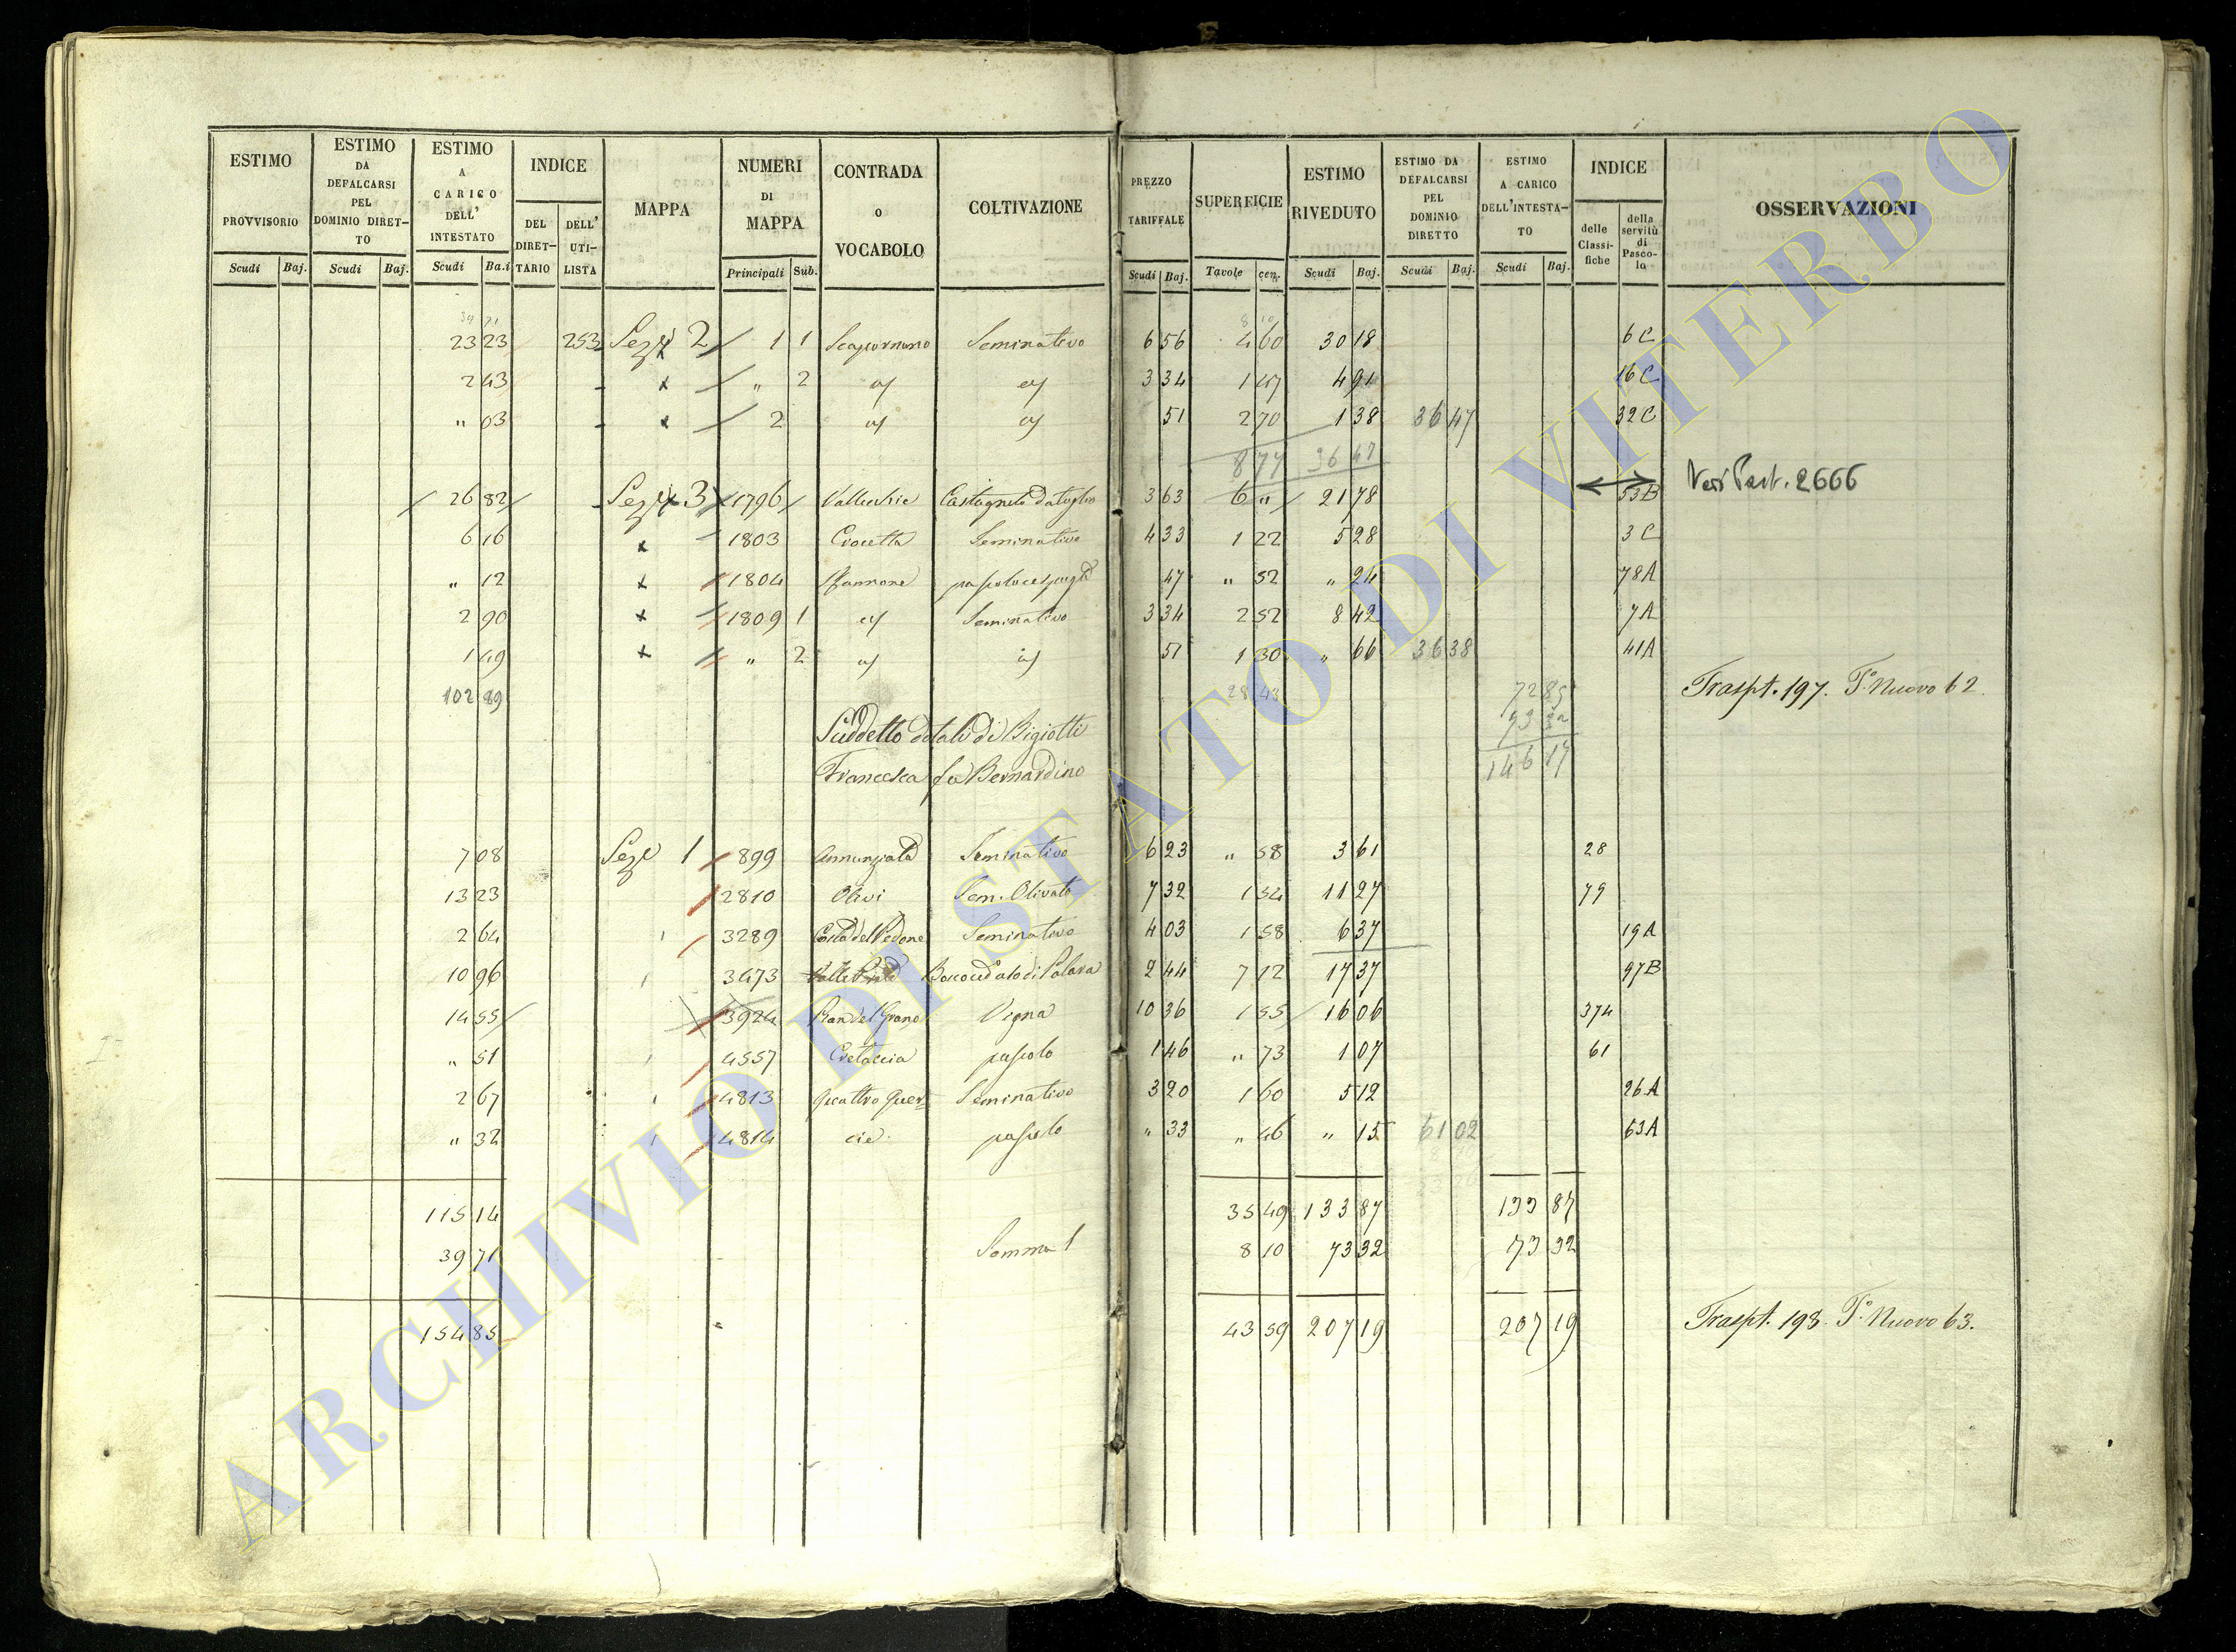 ESTIMO PROVVISORIO Scudi Baj. | ESTIMO DA DEFALCARSI PEL DOMINIO DIRETTO Scudi Baj. | ESTIMO A CARICO DELL' INTESTATO Scudi Ba.i | INDICE DEL DIRETTARIO DELL' UTILISTA | MAPPA | NUMERI DI MAPPA Principali Sub. | CONTRADA O VOCABOLO | COLTIVAZIONE | PREZZO TARIFFALE Scudi Baj. | SUPERFICIE Tavole cen. | ESTIMO RIVEDUTO Scudi Baj. | ESTIMO DA DEFALCARSI PEL DOMINIO DIRETTO Scudi Baj. | ESTIMO A CARICO DELL'INTESTATO Scudi Baj. | INDICE delle Classifiche della servitù di Pascolo | OSSERVAZIONI
34 71 8 10
23 23 253 Sez.e 2 1 1 Seminativo 6 56 4 60 30 18 6 C
2 43 " 2 3 34 1 47 4 91 16 C
" 03 2 51 2 70 1 38 36 47 32 C
8 77 36 47
26 82 Sez.e 3 1796 Vallecchie Castagneto da taglio 3 63 6 " 21 78 53 B Vedi Part. 2666
6 16 1803 Crocetta Seminativo 4 33 1 22 5 28 3 C
" 12 1804 47 " 52 " 24 78 A
2 90 1809 1 Seminativo 3 34 2 52 8 42 7 A
1 49 " 2 51 1 30 " 66 36 38 41 A
102 89 28 43 72 85 Traspt. 197. T.o Nuovo 62.
Suddetto dotali di Bigiotti 73 32
Francesca fu Bernardino 146 17
7 08 Sez.e 1 899 Annunziata Seminativo 6 23 " 58 3 61 28
13 23 2810 Olivi Sem. Olivato 7 32 1 54 11 27 79
2 64 3289 Costa del Pedone Seminativo 4 03 1 58 6 37 19 A
10 96 3473 2 44 7 12 17 37 97 B
14 55 3924 Pian del Grano Vigna 10 36 1 55 16 06 374
" 51 4557 Cretaccia pascolo 1 46 " 73 1 07 61
2 67 4813 Quattro Quer= Seminativo 3 20 1 60 5 12 26 A
" 32 4814 cie. pascolo " 33 " 46 " 15 61 02 63 A
115 14 35 49 133 87 133 87
39 71 Somma 1 8 10 73 32 73 32
154 85 43 59 207 19 207 19 Traspt. 198. T.o Nuovo 63.
ARCHIVIO DI STATO DI VITERBO